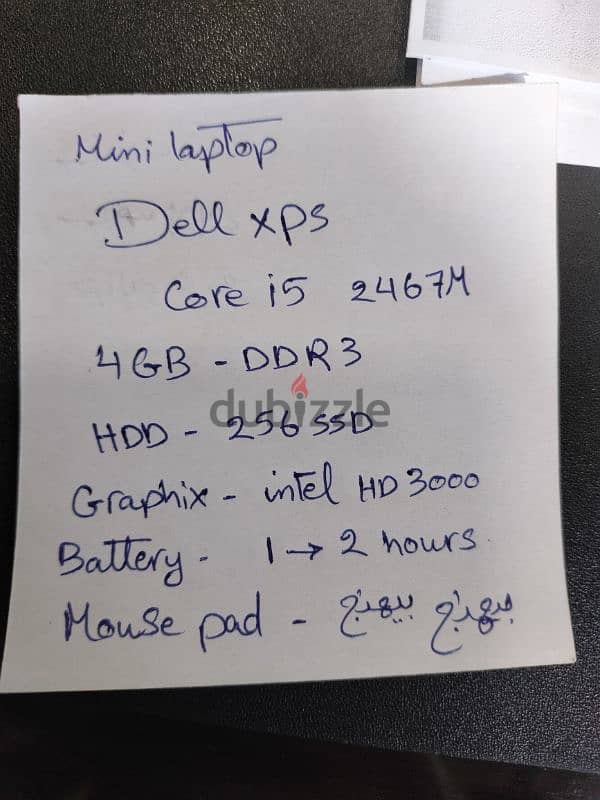 Mini laptop
Dell xps
Core i5 2467M
4GB - DDR3
dubizzle
HDD - 256 SSD
Graphix - intel HD 3000
Battery - 1 → 2 hours
Mouse pad - بيهنج